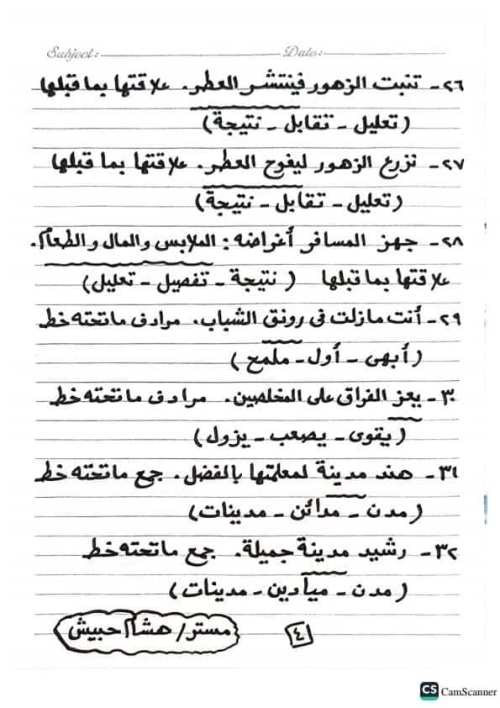 Subject: Date:
٢٦- تنبت الزهور فينتشر العطر. علاقتها بما قبلها
(تعليل - تقابل - نتيجة)
٢٧- نزرع الزهور ليفوح العطر. علاقتها بما قبلها
(تعليل - تقابل - نتيجة)
٢٨- جهز المسافر أغراضه: الملابس والمال والطعام.
علاقتها بما قبلها (نتيجة - تفصيل - تعليل)
٢٩- أنت مازلت فى رونق الشباب. مرادف ماتحته خط
(أبهى - أول - ملمح)
٣٠- يعز الفراق على المخلصين. مرادف ماتحته خط
(يقوى - يصعب - يزول)
٣١- هند مدينة لمعلمتها بالفضل. جمع ماتحته خط
(مدن - مدائن - مدينات)
٣٢- رشيد مدينة جميلة. جمع ماتحته خط
(مدن - ميادين - مدينات)
٤ مستر/ هشام حبيش
CS CamScanner